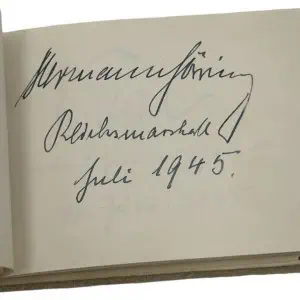 Hermann Göring
Reichsmarschall
Juli 1945.